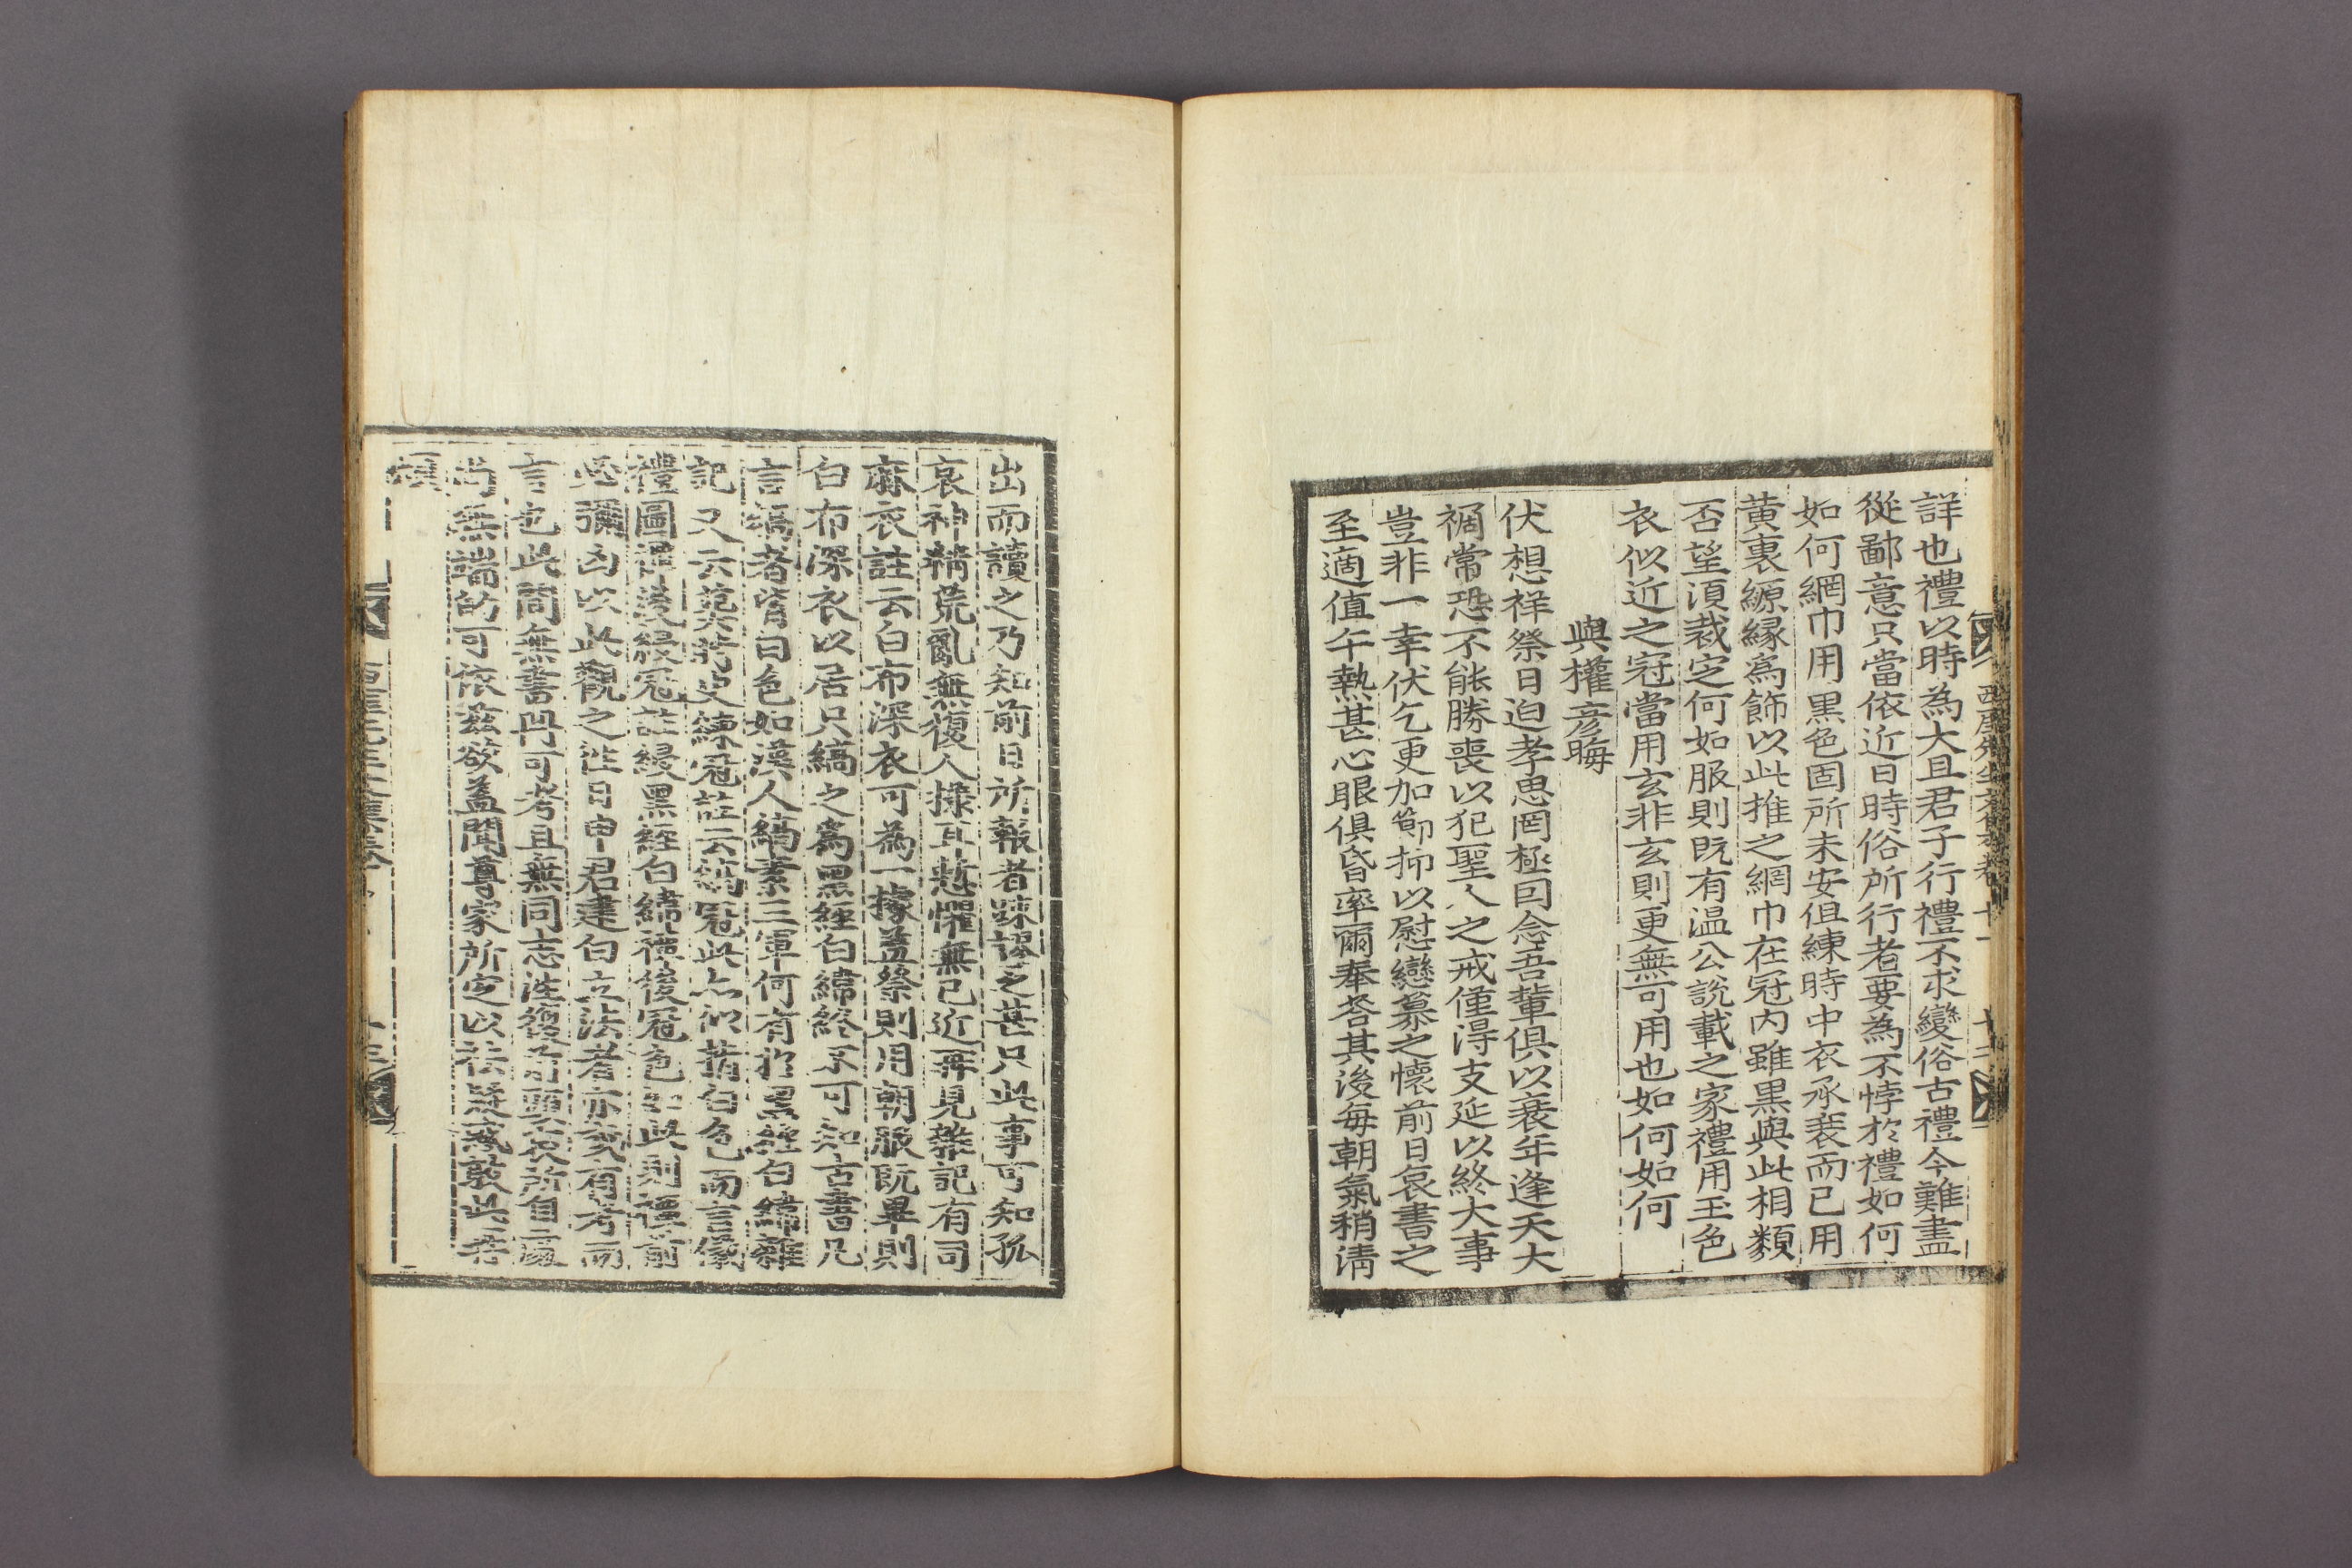 詳也禮以時為大且君子行禮不求變俗古禮今難盡
從鄙意只當依近日時俗所行者要為不悖於禮如何
如何網巾用黑色固所未安但練時中衣承衰而已用
黃裏縓緣爲飾以此推之網巾在冠內雖黑與此相類
否望須裁定何如服則旣有温公說載之家禮用玉色
衣似近之冠當用玄非玄則更無可用也如何如何
與權彦晦
伏想祥祭日迫孝思罔極囙念吾輩俱以衰年逢天大
禍常恐不能勝喪以犯聖人之戒僅淂支延以終大事
豈非一幸伏乞更加節抑以慰戀慕之懷前日哀書之
至適值午熱甚心眼俱昏率爾奉答其後每朝氣稍淸
出而讀之乃知前日所報者踈謬之甚只此事可知孤
哀神精荒亂無復人㨾耳慙懼無已近再見雜記有司
麻衣註云白布深衣可為一據盖祭則用朝服旣畢則
白布深衣以居只縞之爲黑經白緯終不可知古書凡
言縞者皆曰色如漢人縞素三軍何有於黑經白緯雜
記又云筮史練冠註云縞冠此亦似指白色而言儀
禮圖禫後綅冠註綅黑經白緯禫後冠色如此則禫前
必彌凶以此觀之往日申君建白立法者亦或有考而
言也此間無書冊可考且無同志往復
尚無端的可依茲欲盖聞尊家所定以祛疑惑敢此
煩